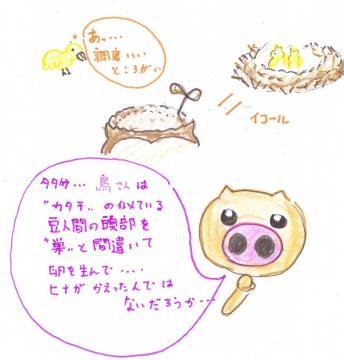 あ、、…
調度いい
ところが、、
イコール
タタリ… 鳥さんは
"カタチ"の似ている
豆人間の頭部を
"巣"と間違いて
卵を生んで‥‥
ヒナが かえったんでは
ないだろうか…